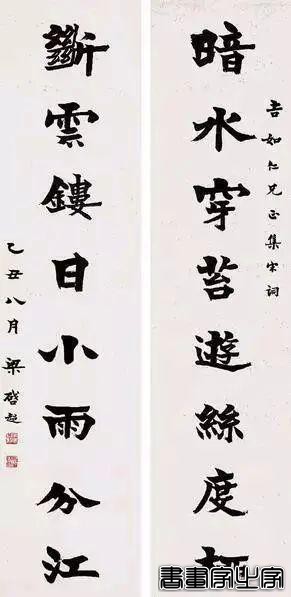 吉如仁兄正集宋詞
暗水穿苔遊絲度
斷雲鏤日小雨分江
乙丑八月梁啓超